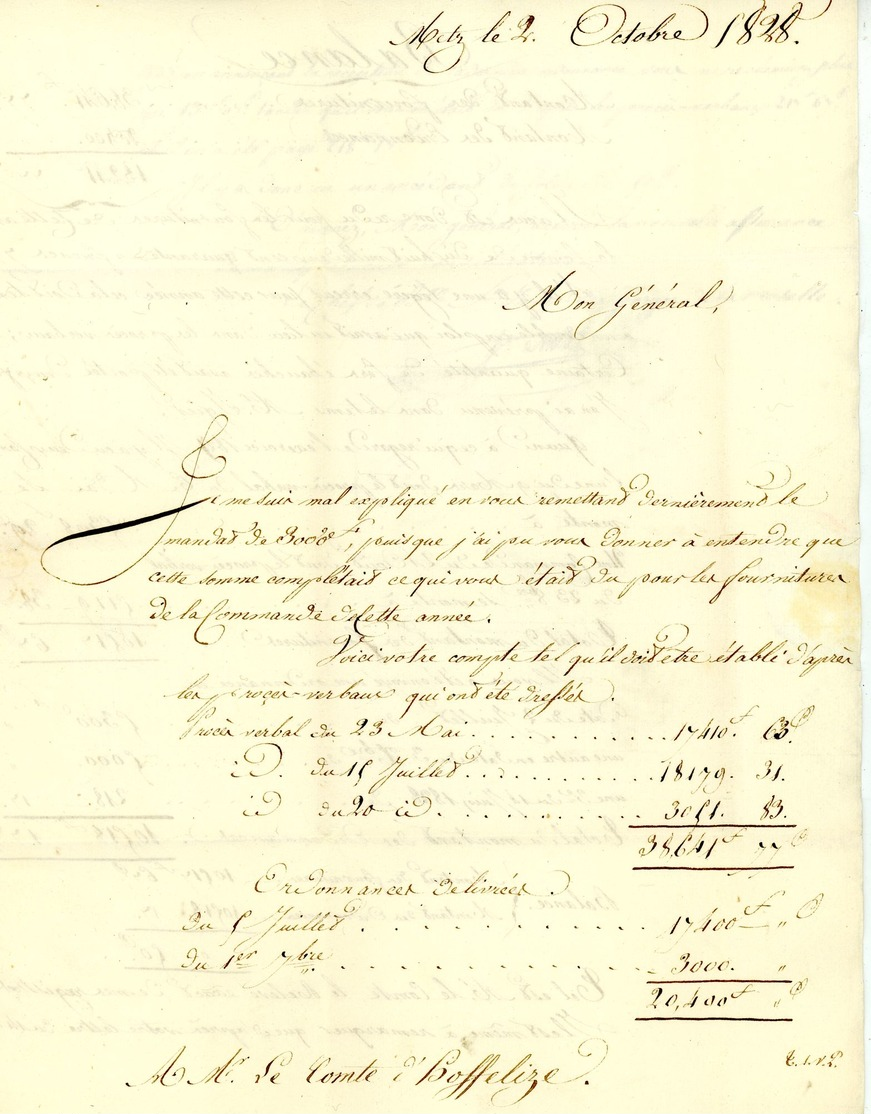 Metz le 2. Octobre 1828.
Mon Général,
Je me suis mal expliqué en vous remettant dernièrement le
mandat de 3000f, puisque j'ai pu vous donner à entendre que
cette somme complétait ce qui vous était du pour les fournitures
de la Commande de cette année.
Voici votre compte tel qu'il doit etre établi d'après
les procès-verbaux qui ont été dressés.
Procès verbal du 23 Mai........... 17410.f 63.c
iD. du 15 Juillet........... 18179. 31.
id du 20 id........... 3051. 83.
38,641f 77c
Ordonnances délivrées.
du 5 Juillet........... 17400f „ c
du 1er 7bre........... 3000. „
20,400f „ c
A Mr. Le Comte d'hoffelize.